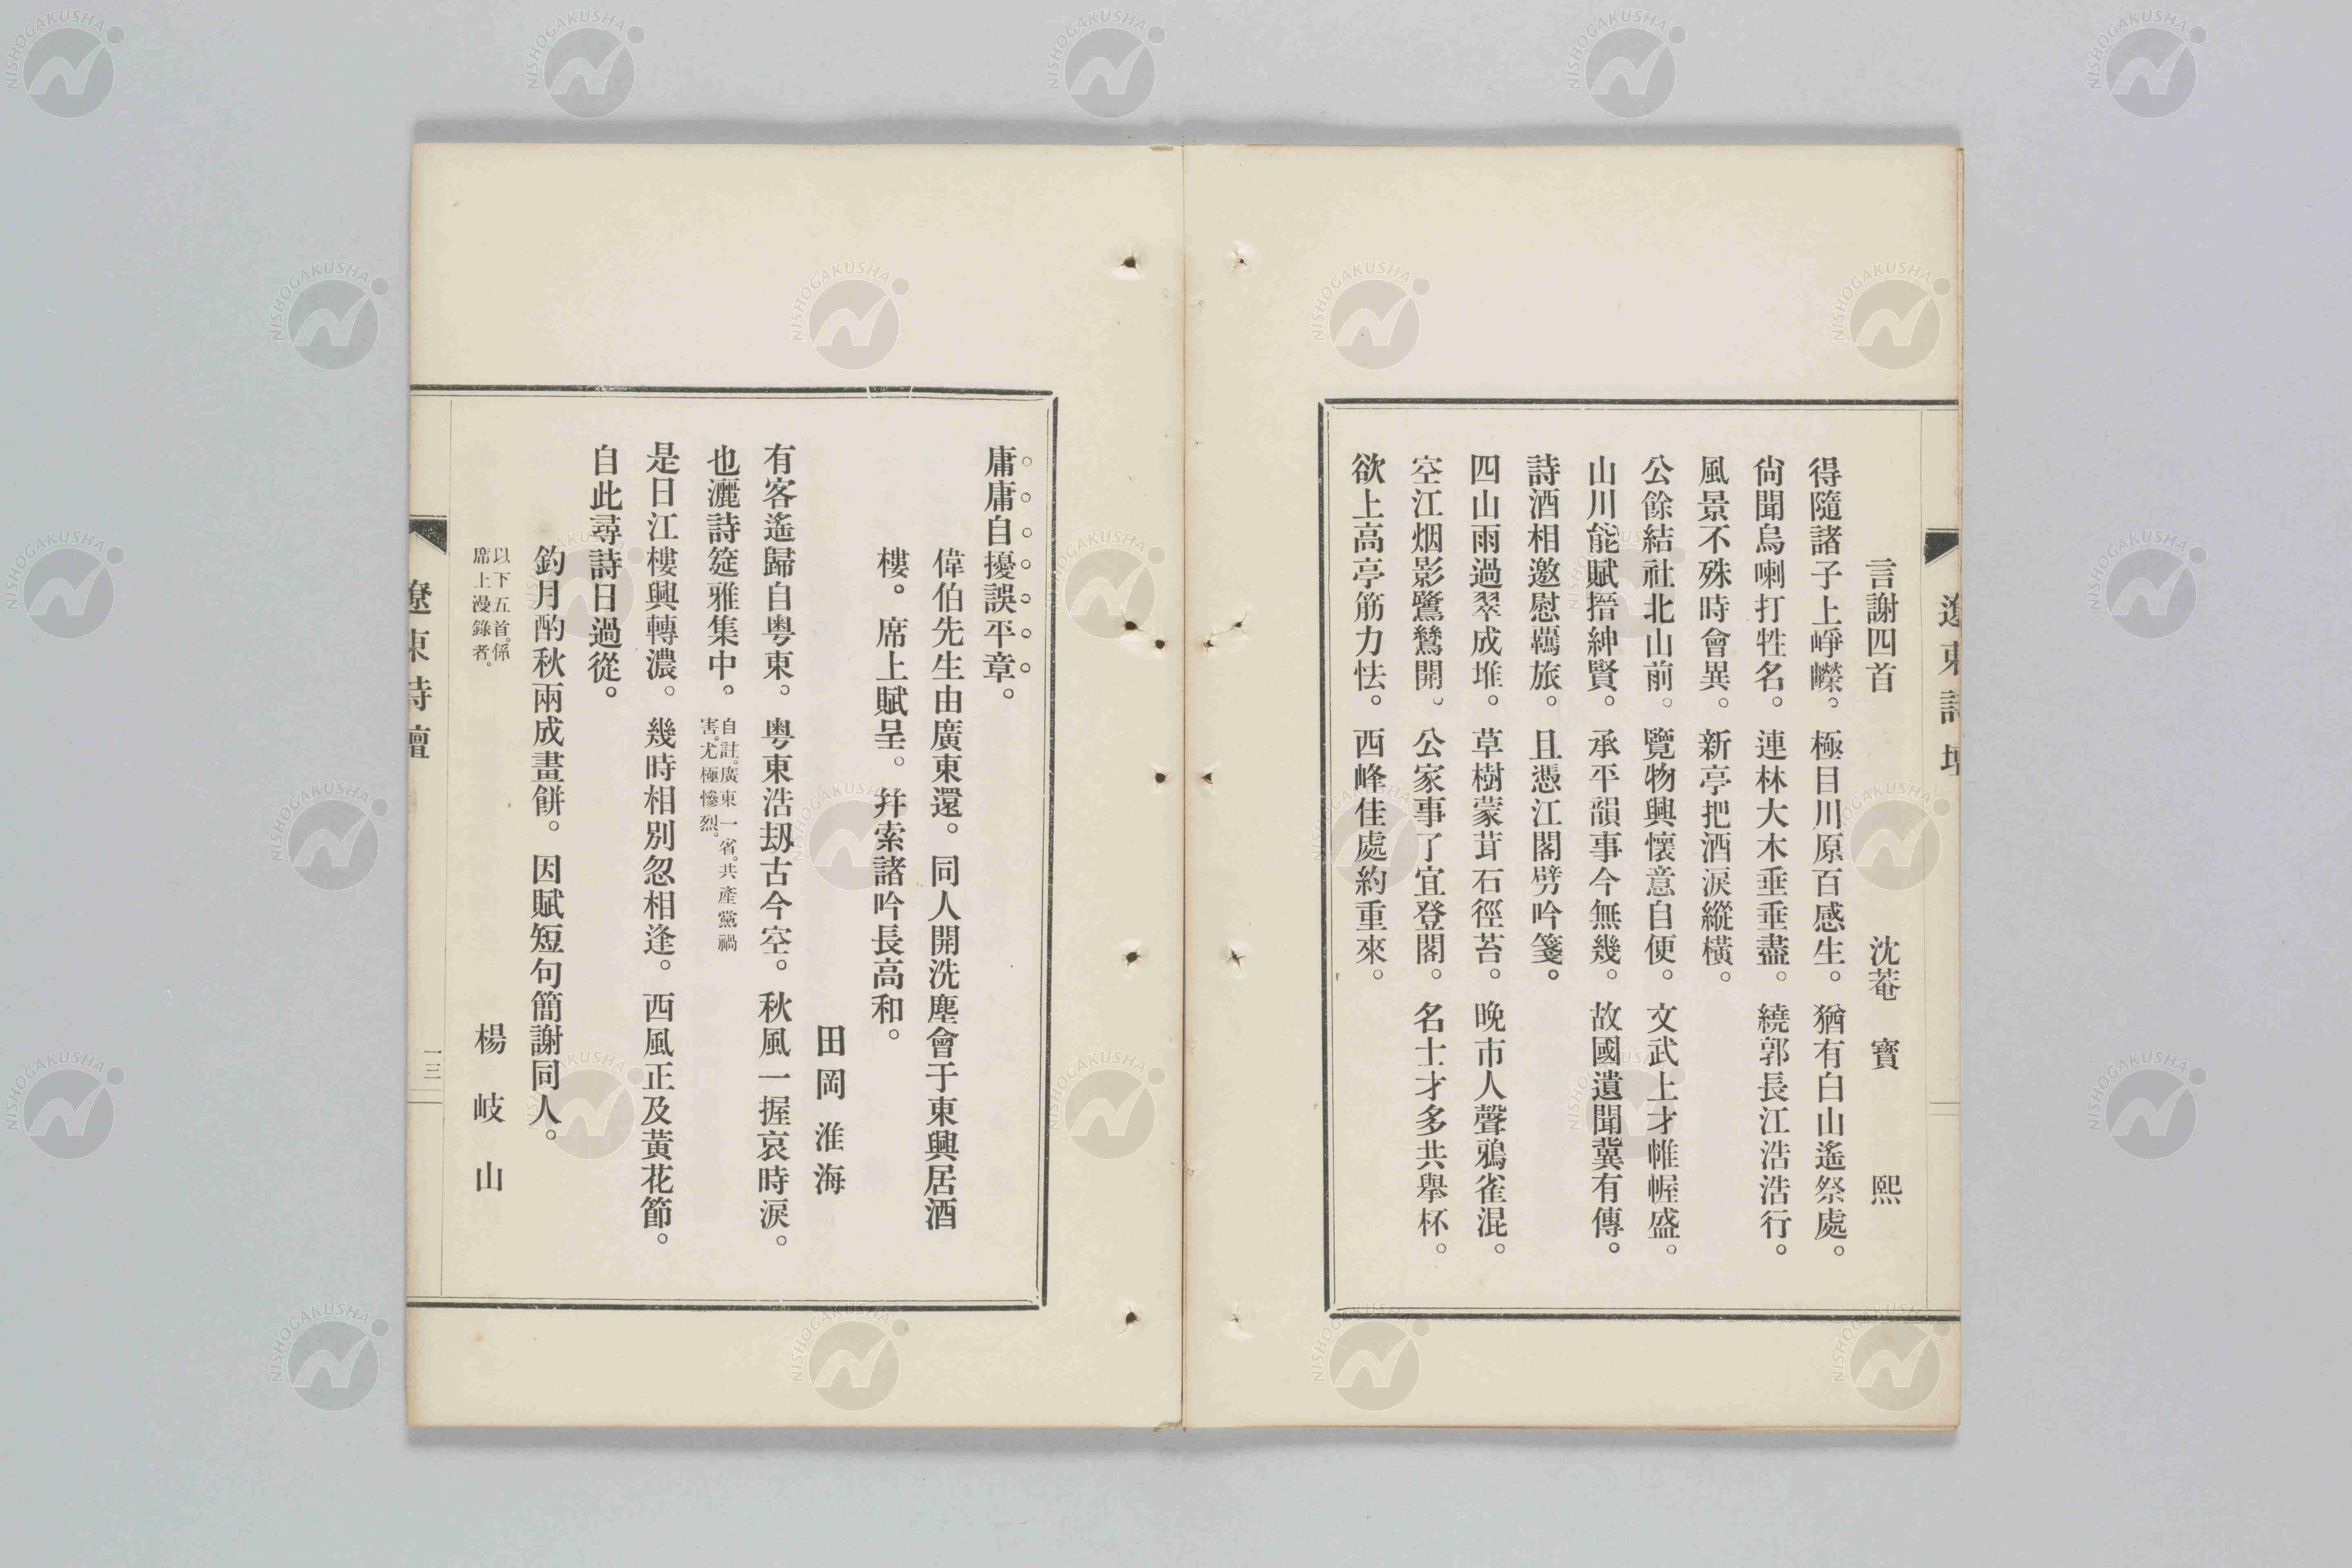 遼東詩壇
言謝四首　沈菴　寶　熙
得隨諸子上崢嶸。極目川原百感生。猶有白山遙祭處。
尙聞烏喇打牲名。連林大木垂垂盡。繞郭長江浩浩行。
風景不殊時會異。新亭把酒淚縱橫。
公餘結社北山前。覽物興懷意自便。文武上才帷幄盛。
山川能賦搢紳賢。承平韻事今無幾。故國遺聞冀有傳。
詩酒相邀慰羈旅。且憑江閣劈吟箋。
四山雨過翠成堆。草樹蒙茸石徑苔。晚市人聲鴉雀混。
空江烟影鷺鶿開。公家事了宜登閣。名士才多共舉杯。
欲上高亭筋力怯。西峰佳處約重來。
庸庸自擾誤平章。
偉伯先生由廣東還。同人開洗塵會于東興居酒
樓。席上賦呈。幷索諸吟長高和。
田岡淮海
有客遙歸自粤東。粤東浩刼古今空。秋風一握哀時淚。
也灑詩筵雅集中。自註。廣東一省。共產黨禍
害。尤極慘烈。
是日江樓興轉濃。幾時相別忽相逢。西風正及黃花節。
自此尋詩日過從。
釣月酌秋兩成畫餅。因賦短句簡謝同人。
以下五首。係
席上漫錄者。
楊岐山
遼東詩壇
一三
NISHOGAKUSHA